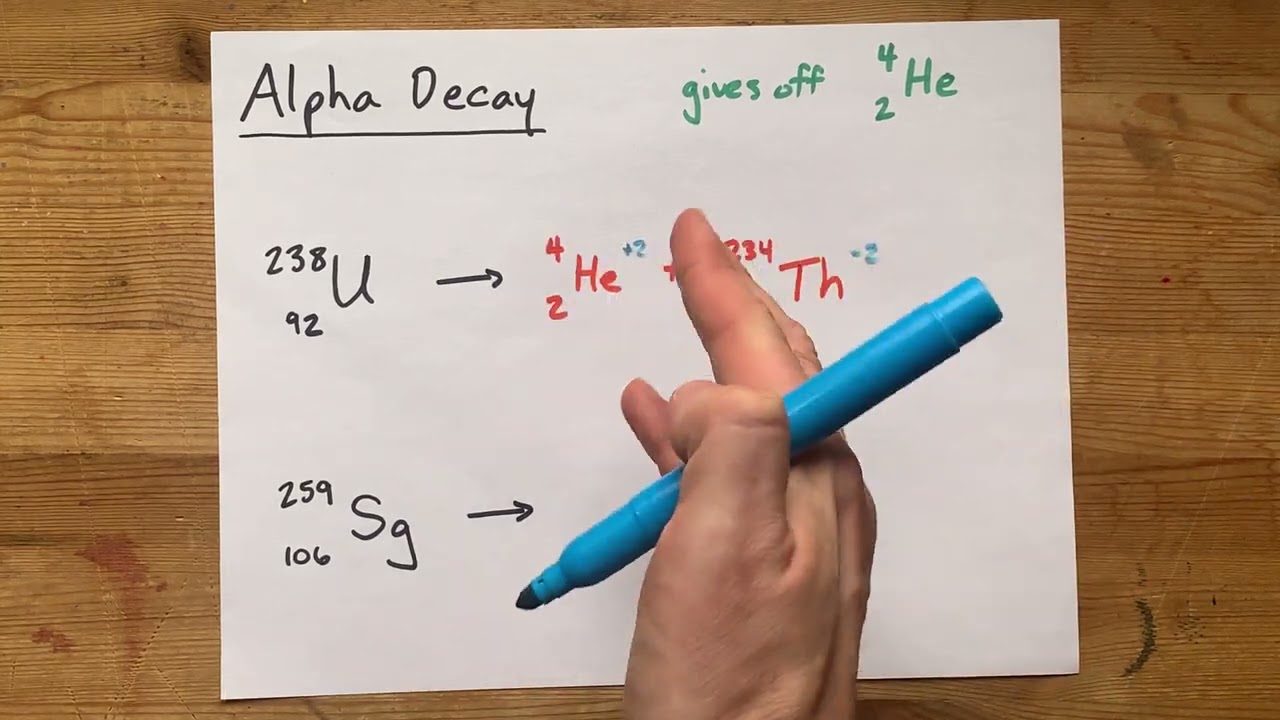 Alpha Decay gives off ⁴₂He
²³⁸₉₂U → ⁴₂He⁺² + ²³⁴Th⁻²
²⁵⁹₁₀₆Sg →